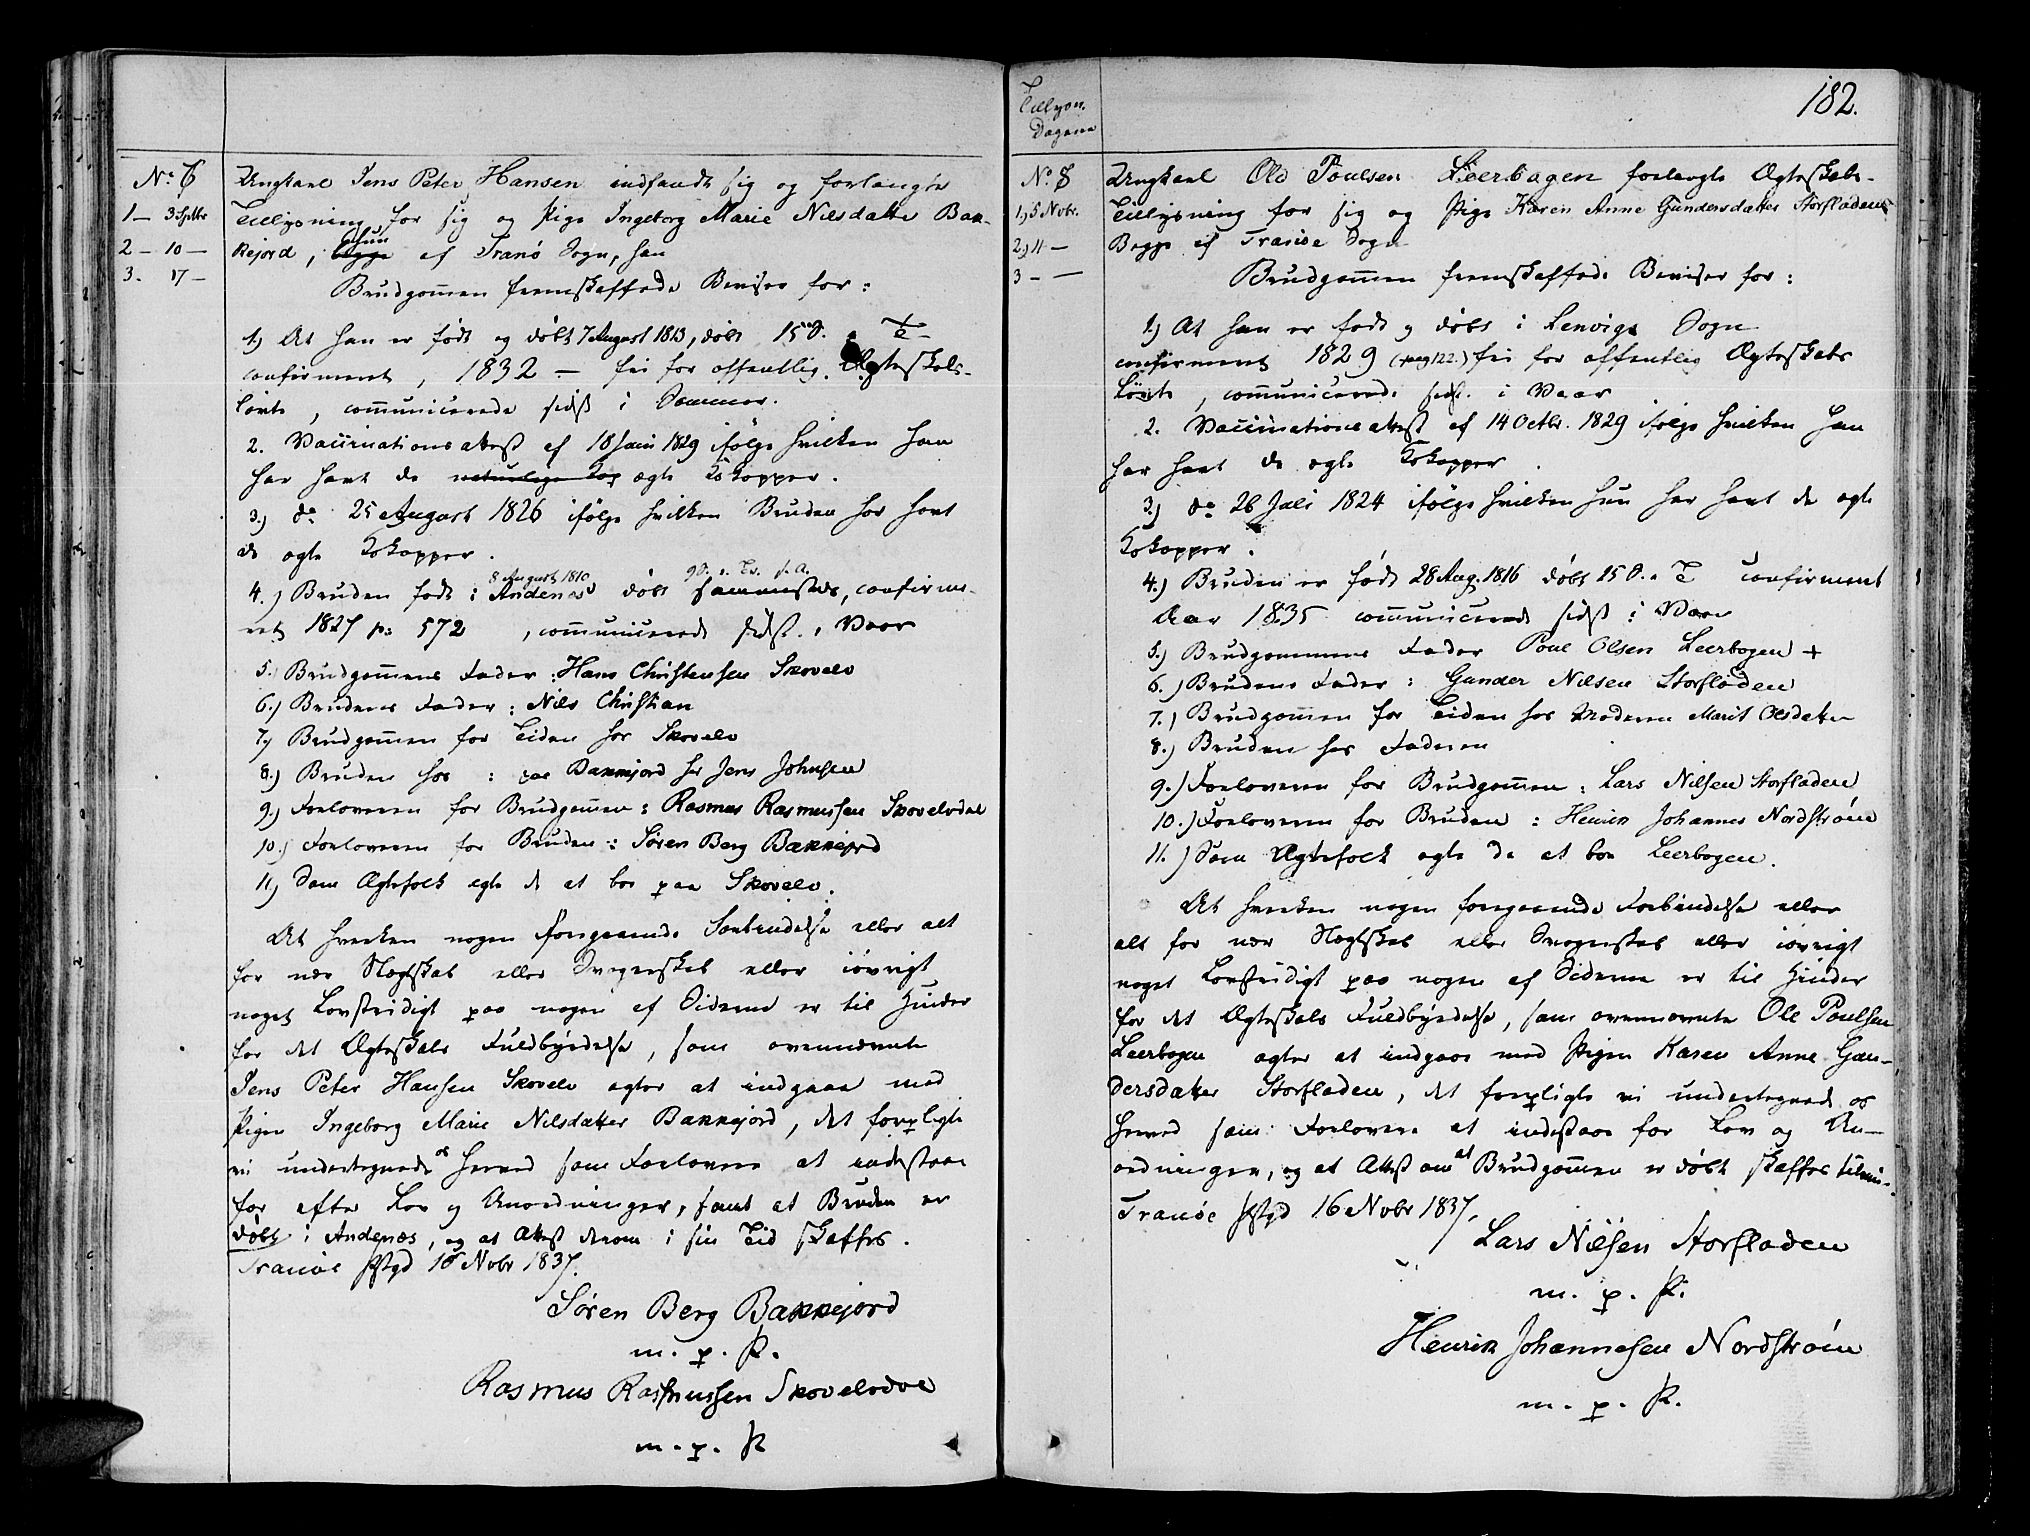 No 6
1 — 3 Septbr
2 — 10 —
3. 17 —
Ungkarl Jens Peter Hansen indfandt sig og forlangte
Tillysning for sig og Pige Ingeborg Marie Nilsdatter Bak-
kejord, begge hun af Tranø Sogn, han
Brudgommen fremskaffede Beviser for:
1.) At han er født og døbt 7 August 1813, døbt 15 S. e. T.
confirmeret, 1832 — fri for offentlig Ægteskabs-
løvte, communicerede sidst i Sommer.
2. Vaccinationsattest af 18 Juni 1829 ifølge hvilken han
har havt de naturlige Kop ægte Kokopper.
3.) do 25 August 1826 ifølge hvilken Bruden har havt
de ægte Kokopper.
8 August 1810 9 S. e. Tr. s. A.
4.) Bruden født i Andenæs døbt sammesteds, confirme-
ret 1827 p: 572, communicerede sidst i Vaar
5.) Brudgommens Fader: Hans Christensen Skovelv
6.) Brudens Fader: Niels Christian
7.) Brudgommen for Tiden hos Skovelv
8.) Bruden hos: paa Bakkejord hos Jens Johnsen
9.) Forloveren for Brudgommen: Rasmus Rasmussen Skovelvdal
10.) Forloveren for Bruden: Søren Berg Bakkejord
11.) Som Ægtefolk agte de at boe paa Skovelv.
At hverken nogen foregaaende Forbindelse eller alt
for nær Slægtskab eller Svogerskab eller iøvrigt
noget Lovstridigt paa nogen af Siderne er til Hinder
for det Ægteskabs Fuldbyrdelse, som ovennævnte
Jens Peter Hansen Skovelv agter at indgaae med
Pigen Ingeborg Marie Nilsdatter Bakkejord, det forpligte
vi undertegnede os herved som Forlovere at indestaae
for efter Lov og Anordninger, samt at Bruden er
døbt i Andenæs, og at Attest derom i sin Tid skaffes.
Tranøe Pstgd 16 Novbr 1837.
Søren Berg Bakkejord
m. p. P.
Rasmus Rasmussen Skovelvdal
m. p. P
Tillysn.
Dagene
182.
No. 8
1.) 5 Novbr.
2.) 11 —
3 — —
Ungkarl Ole Poulsen Leerbogen forlangte Ægteskabs-
Tillysning for sig og Pige Karen Anne Gundersdatter Storfladen
Begge af Tranøe Sogn
Brudgommen fremskaffede Beviser for:
1.) At han er født og døbt i Lenvigs Sogn
confirmeret 1829 (pag 122.) fri for offentlig Ægteskabs
Løvte, communicerede sidst i Vaar
2. Vaccinationsattest af 14 Octbr. 1829 ifølge hvilken han
har havt de ægte Kokopper.
3.) do 26 Juli 1824 ifølge hvilken hun har havt de ægte
Kokopper.
4.) Bruden er født 28 Aug. 1816 døbt 15 S. e. T. confirmeret
Aar 1835 communicerede sidst i Vaar
5.) Brudgommens Fader Poul Olsen Leerbogen +
6.) Brudens Fader: Gunder Nilsen Storfladen
7.) Brudgommen for Tiden hos Moderen Marit Olsdatter
8.) Bruden hos Faderen
9.) Forloveren for Brudgommen: Lars Nilsen Storfladen
10.) Forloveren for Bruden: Henrik Johannes Nordstrøm
11.) Som Ægtefolk agte de at boe Leerbogen.
At hverken nogen foregaaende Forbindelse eller
alt for nær Slægtskab eller Svogerskab eller iøvrigt
noget Lovstridigt paa nogen af Siderne er til Hinder
for det Ægteskabs Fuldbyrdelse, som ovennævnte Ole Poulsen
Leerbogen agter at indgaae med Pigen Karen Anne Gun-
dersdatter Storfladen, det forpligte vi undertegnede os
herved som Forlovere at indestaae for Lov og An-
ordninger, og at Attest om at Brudgommen er døbt skaffes
Tranøe Pstgd 16 Novbr 1837.
Lars Nilsen Storfladen
m. p. P.
Henrik Johannesen Nordstrøm
m. p. P.